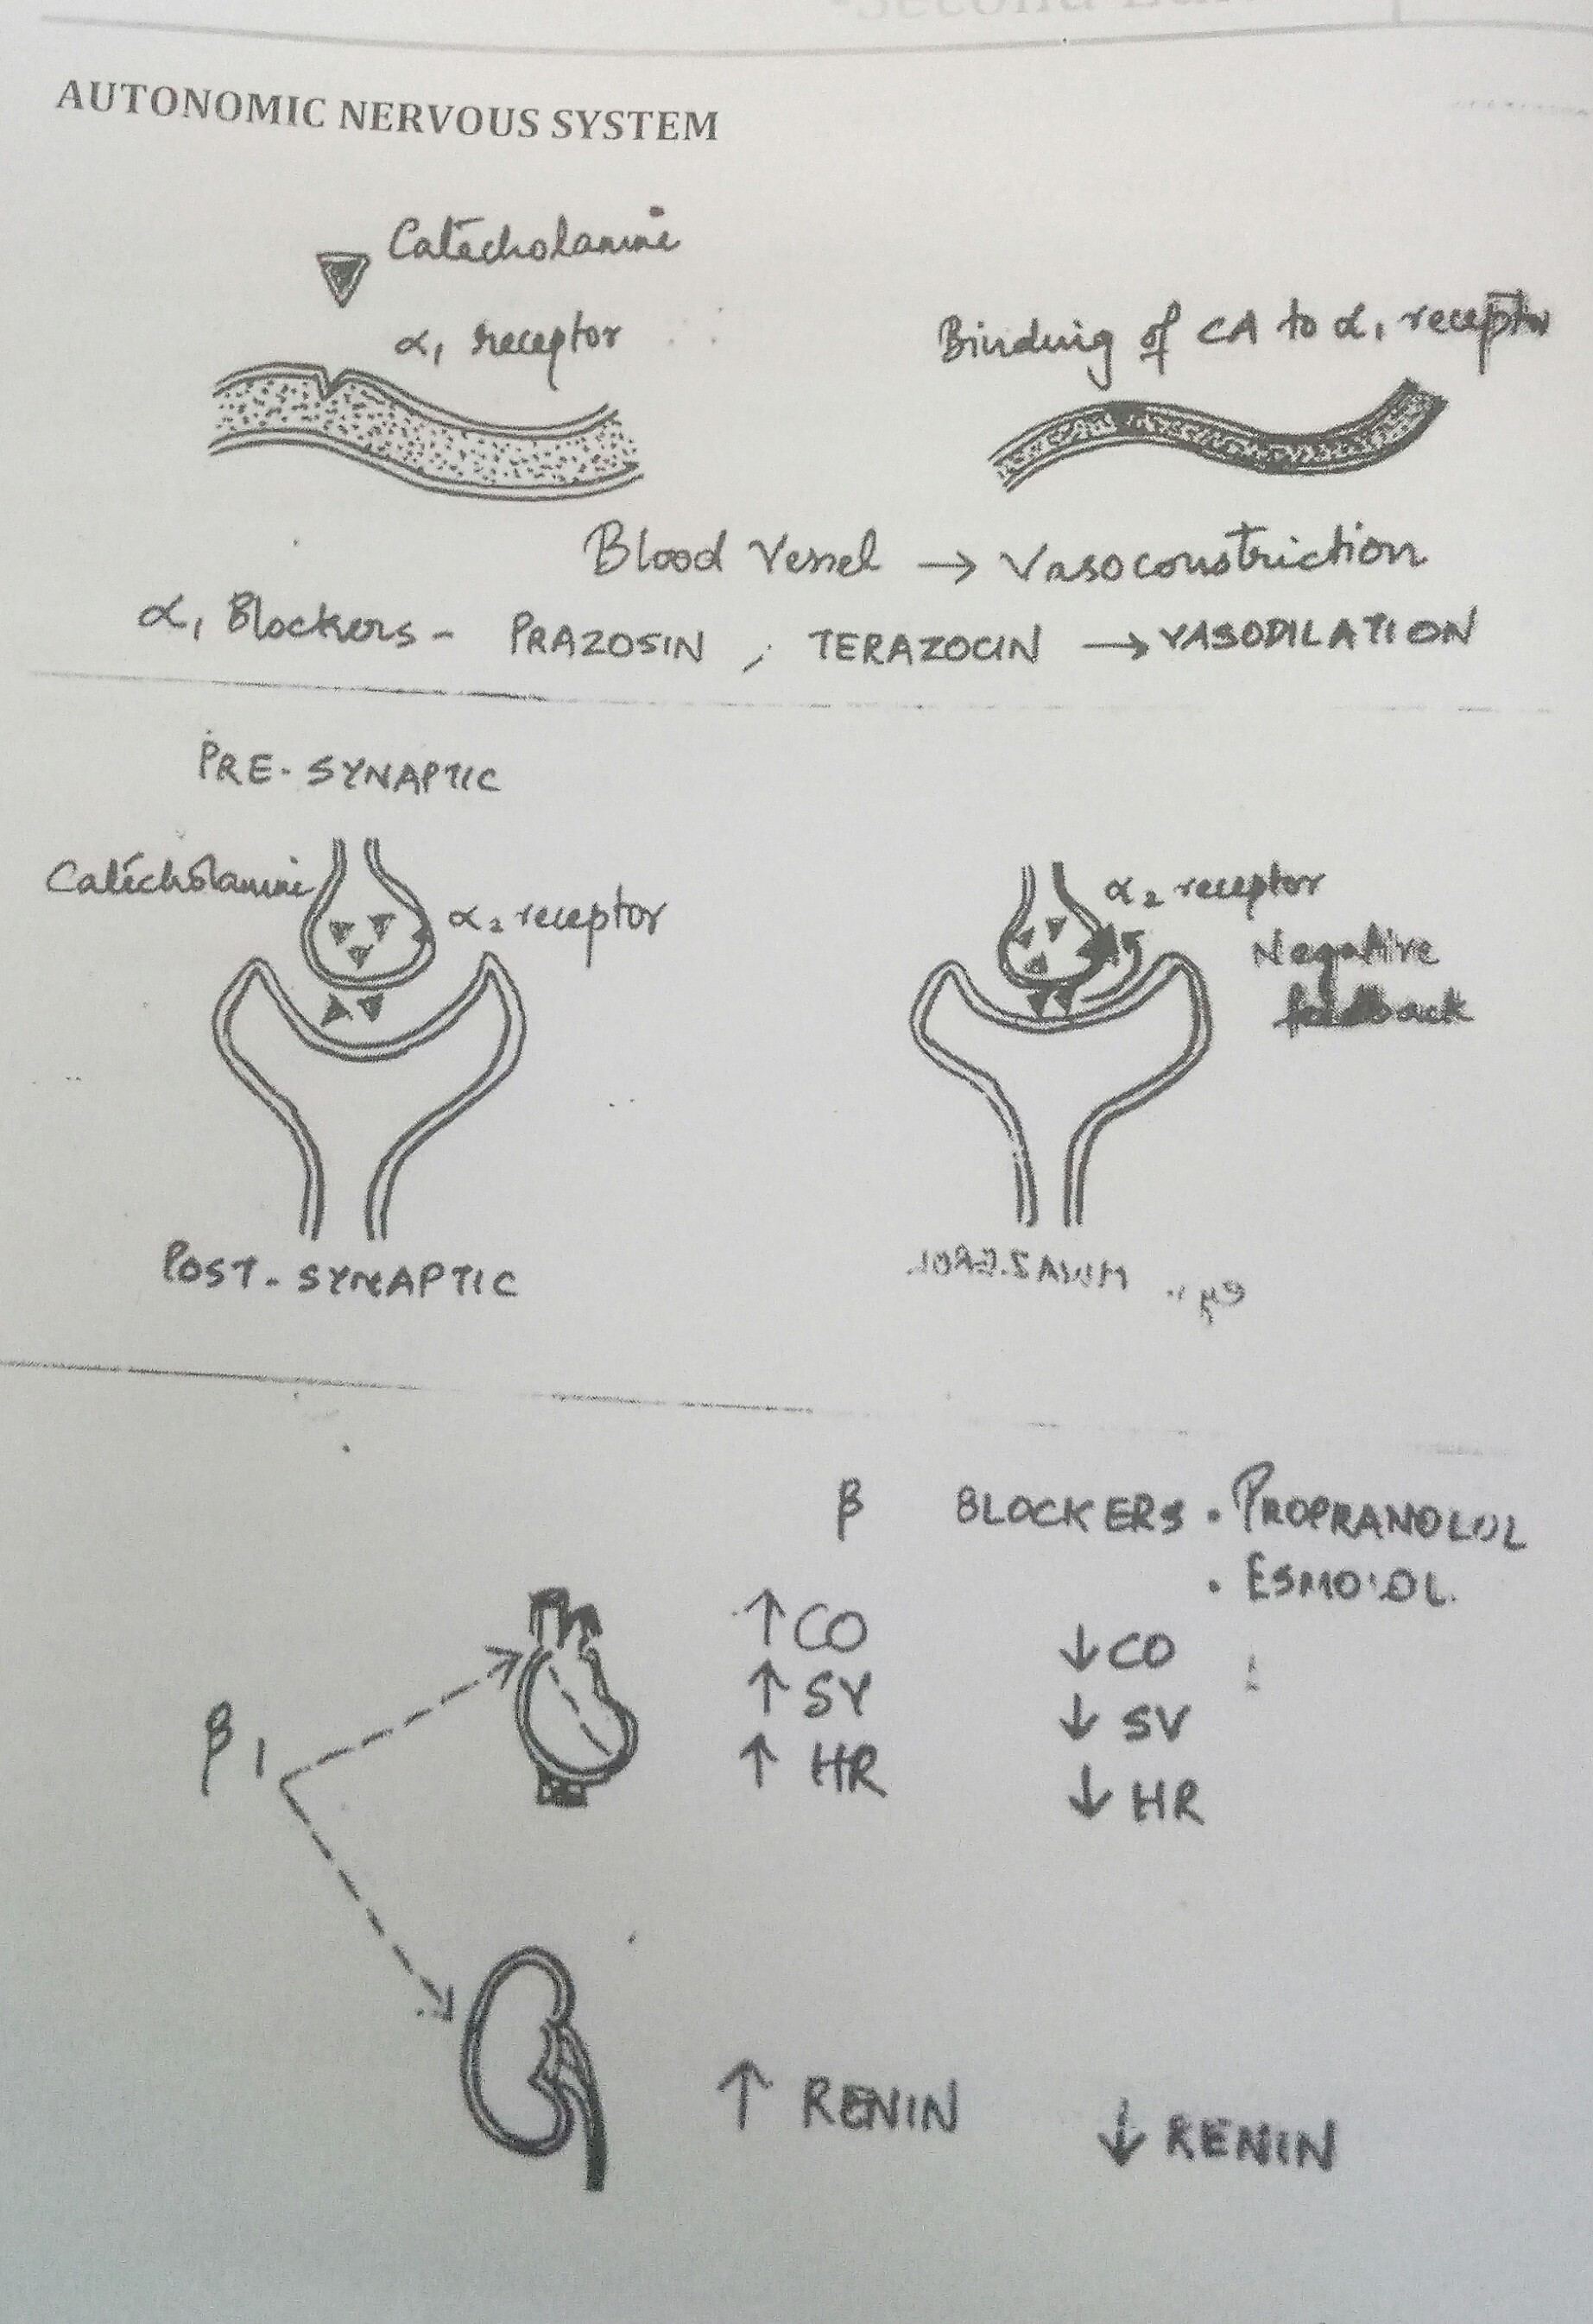 AUTONOMIC NERVOUS SYSTEM
Catecholamine
α₁ receptor
Binding of CA to α₁ receptor
Blood Vessel → Vasoconstriction
α₁ Blockers - PRAZOSIN, TERAZOCIN → VASODILATION
PRE-SYNAPTIC
Catecholamine
α₂ receptor
α₂ receptor
Negative
feedback
POST-SYNAPTIC
β BLOCKERS • PROPRANOLOL
• ESMOLOL
↑ CO
↑ SV
↑ HR
↓ CO
↓ SV
↓ HR
β₁
↑ RENIN
↓ RENIN